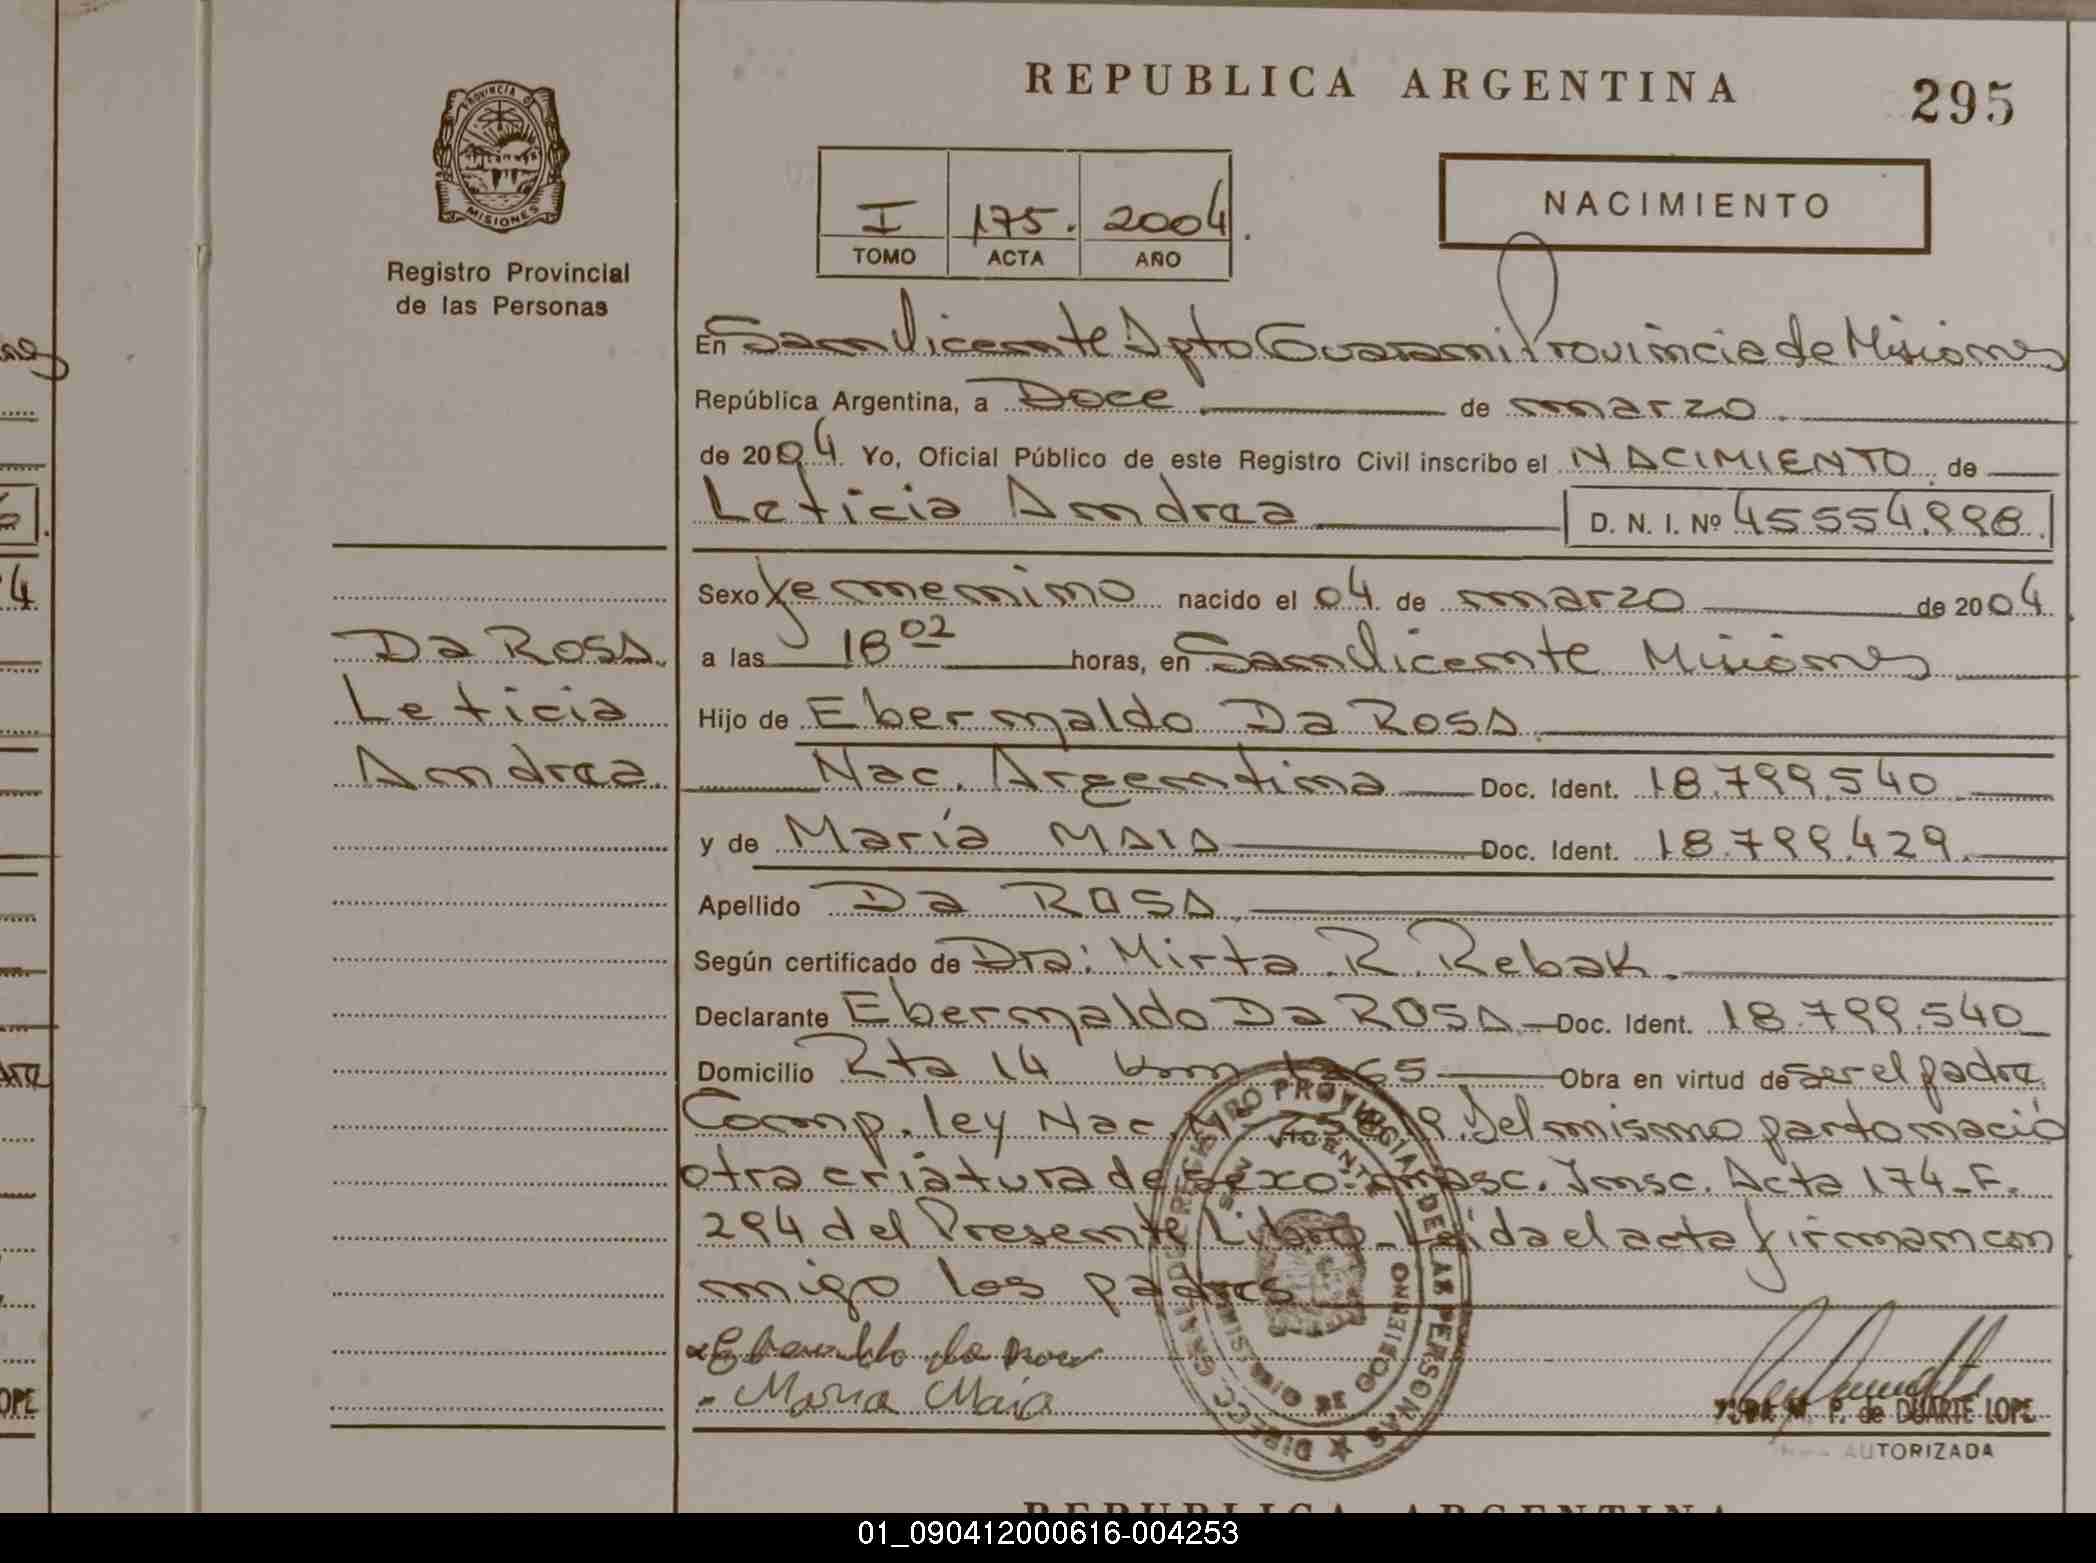 REPUBLICA ARGENTINA
295
PROVINCIA D
MISIONES
Registro Provincial
de las Personas
I 175. 2004.
TOMO ACTA AÑO
NACIMIENTO
En San Vicente Dpto Guarani Provincia de Misiones
República Argentina, a Doce de marzo
de 2004. Yo, Oficial Público de este Registro Civil inscribo el NACIMIENTO de
Leticia Andrea D. N. I. Nº 45.554.998.
Sexo femenino nacido el 04 de marzo de 2004.
a las 18 02 horas, en San Vicente Misiones
Hijo de Ebernaldo Da Rosa
Nac. Argentina Doc. Ident. 18.799.540
y de María MAIA Doc. Ident. 18.799.429.
Apellido Da ROSA
Según certificado de Dra: Mirta R. Rebak.
Declarante Ebernaldo Da ROSA Doc. Ident. 18.799.540
Domicilio Rta 14 km 1265 Obra en virtud de ser el padre
Comp. ley Nac. Del mismo parto nació
otra criatura de sexo: masc. Insc. Acta 174-F.
294 del Presente Libro - Leída el acta firman con
migo los padres
Da Rosa
Leticia
Andrea.
Maria Maia
P. de DUARTE LOPE
AUTORIZADA
REGISTRO PROVINCIAL DE LAR PERSONAS
SAN VICENTE
GOBIERNO
REPUBLICA ARGENTINA
01_090412000616-004253